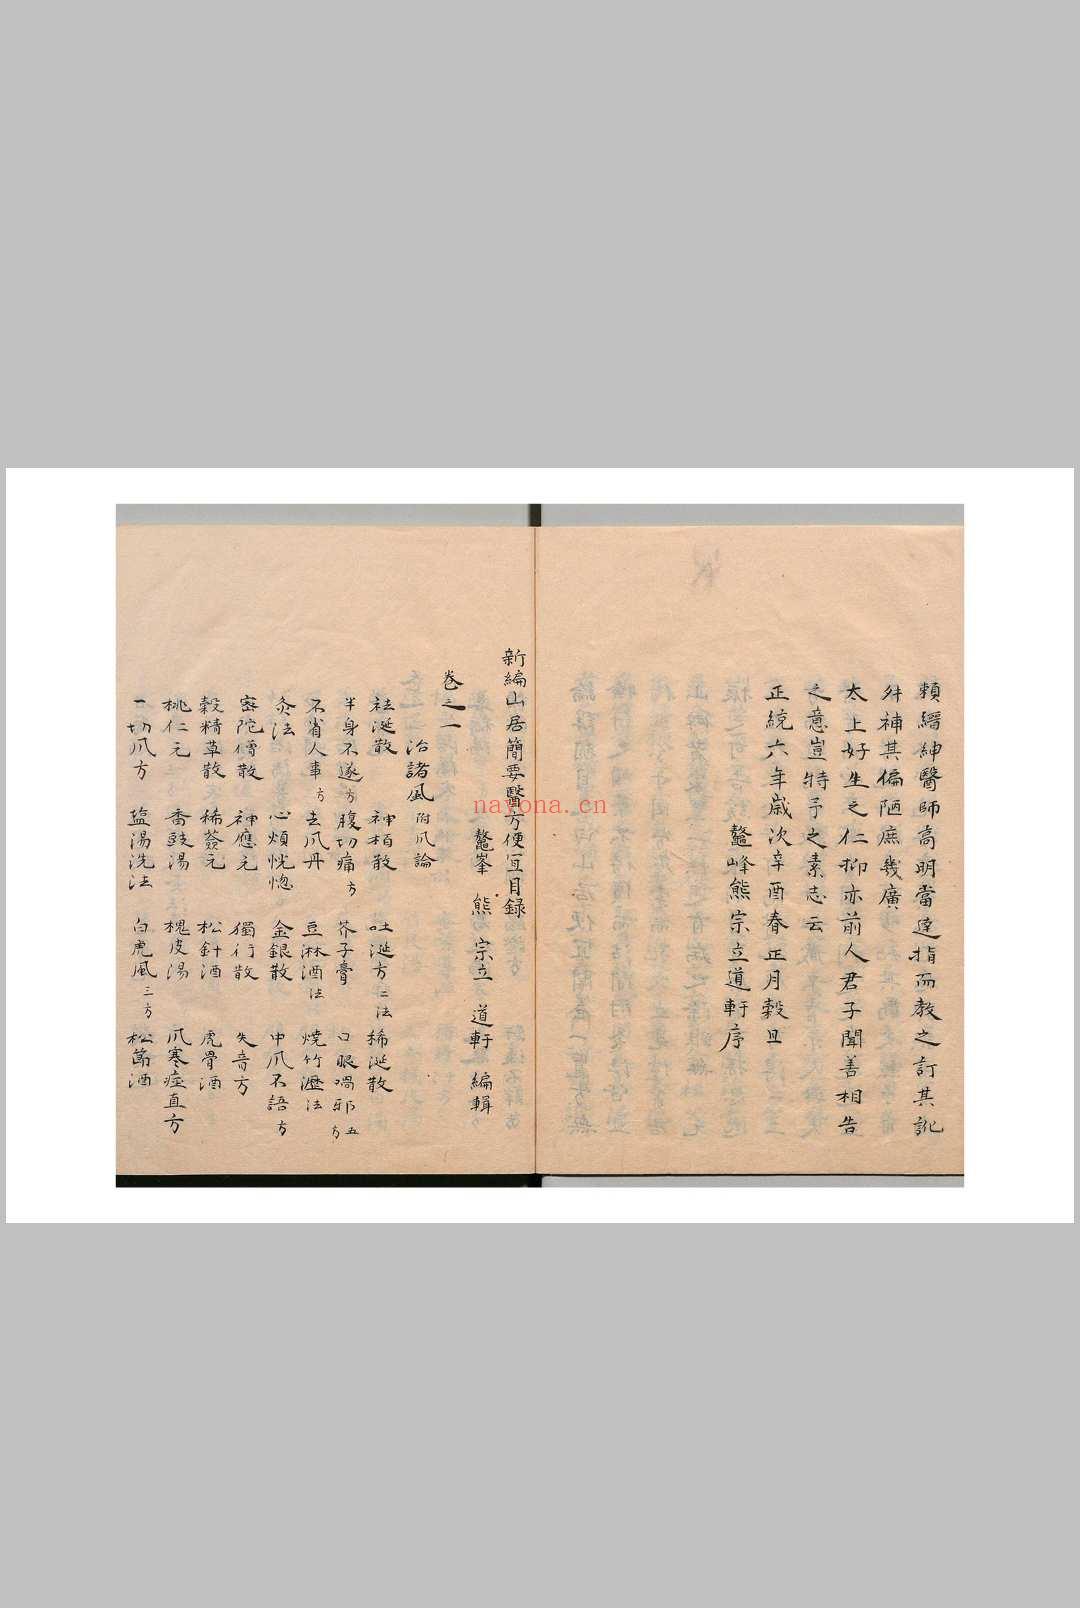 賴縉紳醫師高明當達指而教之訂其訛
舛神其偏陋庶幾廣
太上好生之仁抑亦前人君子聞善相告
之意豈特予之素志云
正統六年歲次辛酉春正月穀旦
鼇峰熊宗立道軒序
新編山居簡要醫方便宜目錄
鼇峯 熊 宗立 道軒 編輯
卷之一
治諸風 附爪論
祛涎散 神柏散 吐涎方二法 稀涎散
半身不遂方 腹切痛方 芥子膏 口眼喎邪五方
不省人事方 去爪丹 豆淋酒法 燒竹瀝法
灸法 心煩恍惚 金銀散 中爪不語方
密陀僧散 神應元 獨行散 失音方
穀精草散 稀薟元 松針酒 虎骨酒
桃仁元 香豉湯 槐皮湯 爪寒症直方
一切爪方 塩湯洗法 白虎風三方 松節酒
nayona.cn